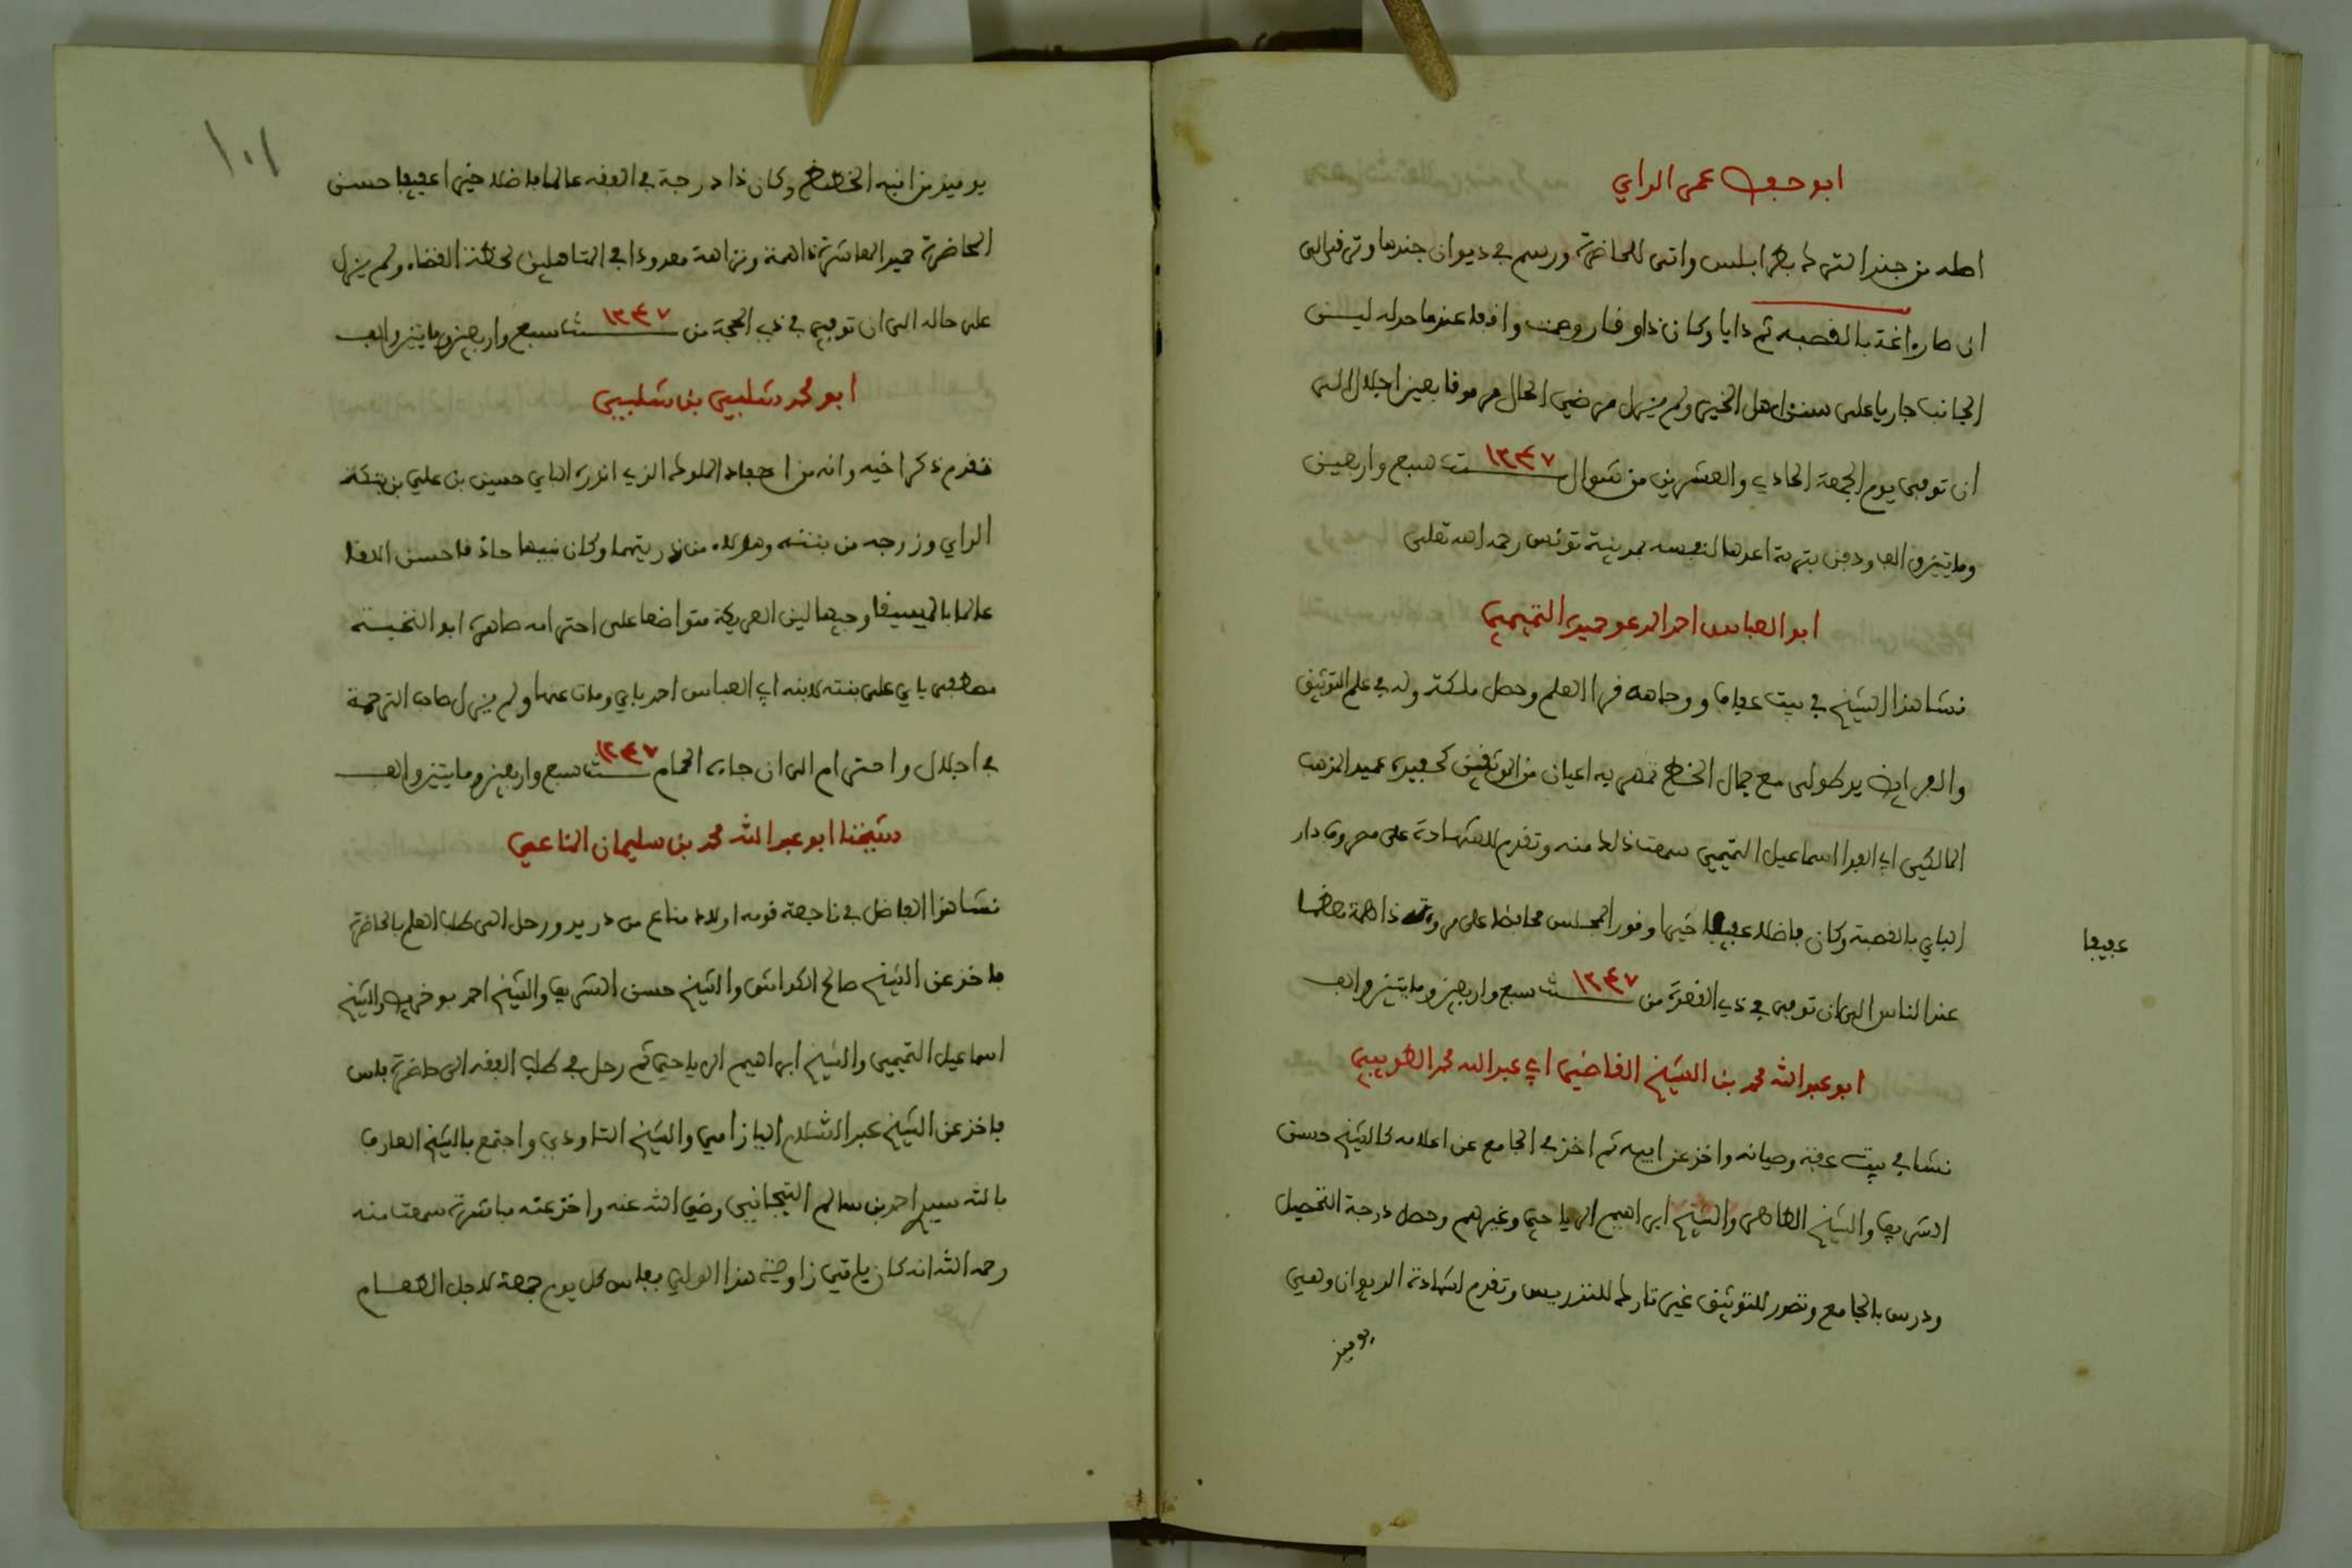 ابو حفص عمر الداي
اصله من جند الترك بطرابلس واتى للحاضرة ورسم في ديوان جندها وترقى الى
ان صار اغة بالقصبه ثم دايا وكان ذا وقار وهمت واقفا عندما حد له لين
الجانب جاريا على سنن اهل الخير ولم يزل مرضي الحال مرموقا بعين اجلال الى
ان توفى يوم الجمعة الحادي والعشرين من شوال سنة ١٢٤٧ سبع واربعين
ومايتين والف ودفن بتربة اعدها لنفسه بمدينة تونس رحمه الله تعلى
ابو العباس احمد المدعو حميدة التميمي
نشا هذا الشيخ في بيت عفاف ووجاهه قرا العلم وحصل ملكته وله في علم التوثيق
والفرايض يد طولى مع جمال الخط تمهر به اعيان من الموثقين كحفيده عميد المذهب
المالكي ابي الفدا اسماعيل التميمي سمعت ذلك منه وتقدم للشهادة على مصروف دار
الباي بالقصبة وكان فاضلا عفيفا خيرا وقور المجلس محافظا على مروته ذا همة معظما
عفيفا
عند الناس الى ان توفى في ذي القعدة من سنة ١٢٤٧ سبع واربعين ومايتين والف
ابو عبد الله محمد بن الشيخ القاضي ابي عبد الله محمد الطويبي
نشا في بيت عفة وصيانه واخذ عن ابيه ثم اخذ في الجامع عن اعلامه كالشيخ حسن
الشريف والشيخ الطاهر والشيخ ابراهيم الرياحي وغيرهم وحصل درجة التحصيل
ودرس بالجامع وتصدر للتوثيق غير تارك للتدريس وتقدم لشهادة الديوان وهي
يوميذ
١٠١
يوميذ من انبه الخطط وكان ذا درجة في الفقه عالما فاضلا خيرا عفيفا حسن
المحاضرة حميد المعاشرة ذا همة ونزاهة معدودا في المتاهلين لخطة القضاء ولم يزل
على حاله الى ان توفي في ذي الحجة من سنة ١٢٤٧ سبع واربعين ومايتين والف
ابو محمد شلبي بن شلبي
تقدم ذكر اخيه وانه من احفاد المملوك الذي انذره الباي حسين بن علي بن بتكة
الداي وزوجه من بنته وهولاء من ذريتهما وكان نبيها حاذقا حسن اللقا
عالما بالميسيقا وجيها لين العريكة متواضعا على احترامه صاهره ابو النخبة
مصطفى باي على بنته لابنه ابي العباس احمد باي وماتت عنها ولم يزل صاحب الترجمة
في اجلال واحترام الى ان جاءه الحمام سنة ١٢٤٧ سبع واربعين ومايتين والف
شيخنا ابو عبد الله محمد بن سليمان المناعي
نشا هذا الفاضل في ناجعة قومه اولاد مناع من دريد ورحل الى طلب العلم بالحاضرة
فاخذ عن الشيخ صالح الكواش والشيخ حسن الشريف والشيخ احمد بوخريص والشيخ
اسماعيل التميمي والشيخ ابراهيم الرياحي ثم رحل في طلب الفقه الى حاضرة فاس
فاخذ عن الشيخ عبد السلام اليازامي والشيخ التاودي واجتمع بالشيخ العارف
بالله سيدي احمد بن سالم التيجاني رضي الله عنه واخذ عنه مباشرة سمعت منه
رحمه الله انه كان ياتي زاوية هذا الولي بفاس كل يوم جمعة لاجل الطعام